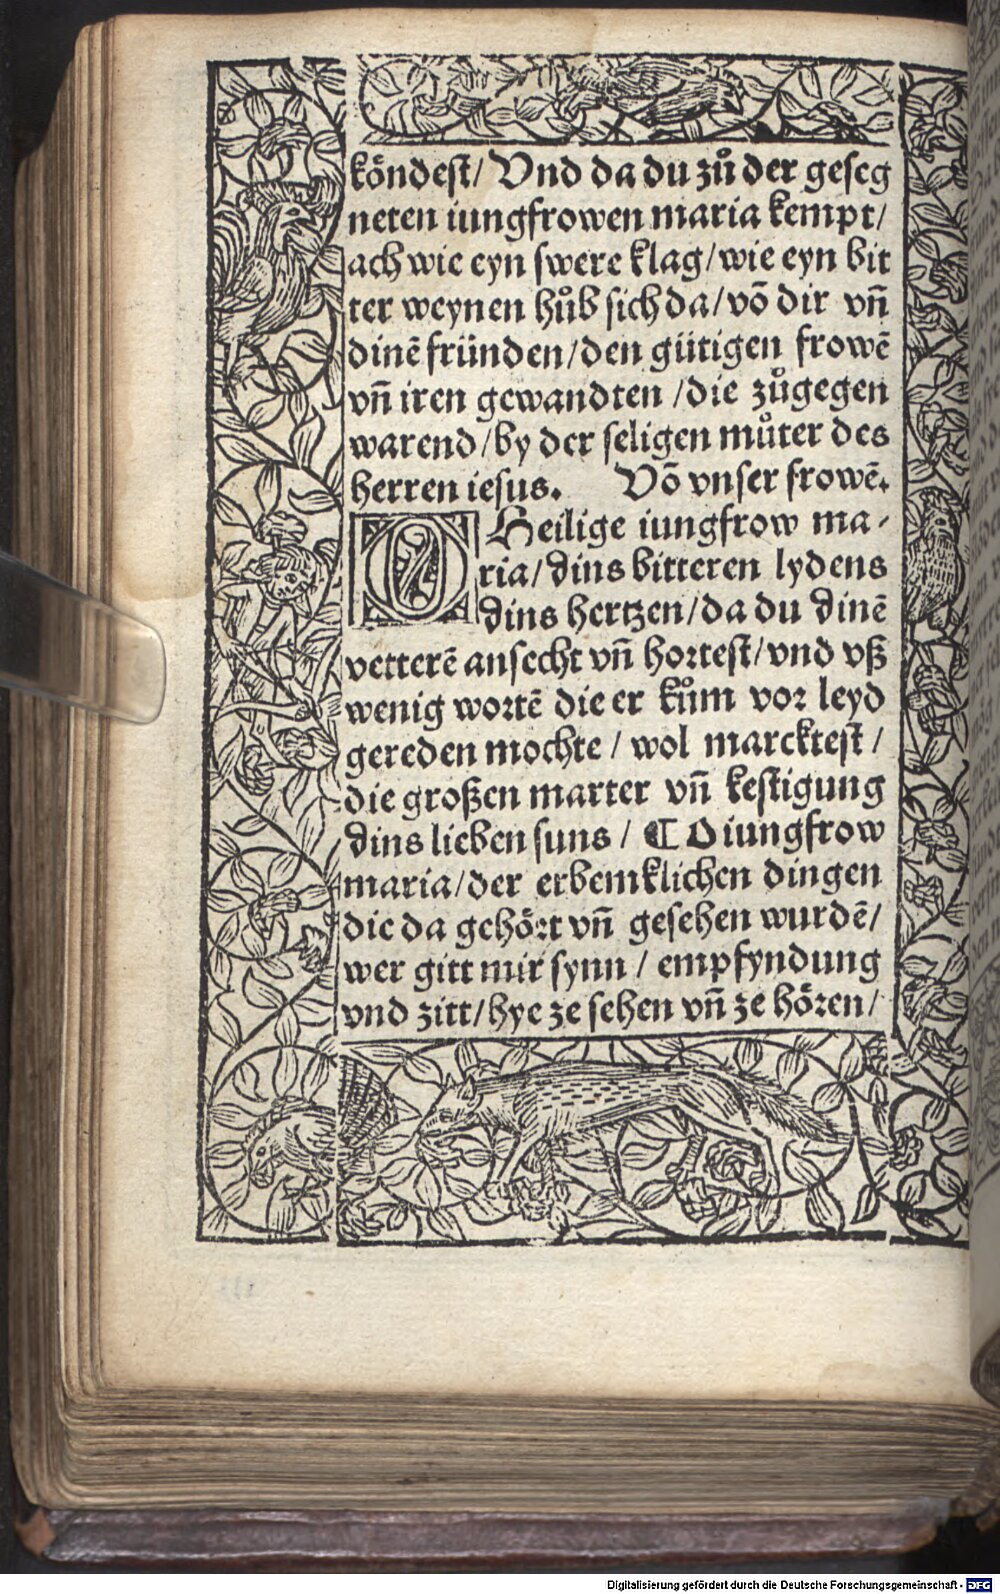 köndest/ Vnd da du zuͦ der geseg
neten iungfrowen maria kempt/
ach wie eyn swere klag/wie eyn bit
ter weynen huͦb sich da/võ dir vñ
dinē fründen/den gütigen frowē
vñ iren gewandten /die zuͦgegen
warend/by der seligen muͦter des
herren iesus. Võ vnser frowē.
O Heilige iungfrow ma-
ria/dins bitteren lydens
dins hertzen/da du dinē
vetterē ansecht vñ hortest/vnd vß
wenig wortē die er kuͦm vor leyd
gereden mochte / wol marcktest /
die großen marter vñ kestigung
dins lieben suns / ¶ O iungfrow
maria/der erbemklichen dingen
die da gehört vñ gesehen wurdē/
wer gitt mir synn / empfyndung
vnd zitt/hye ze sehen vñ ze hören/
Digitalisierung gefördert durch die Deutsche Forschungsgemeinschaft - DFG